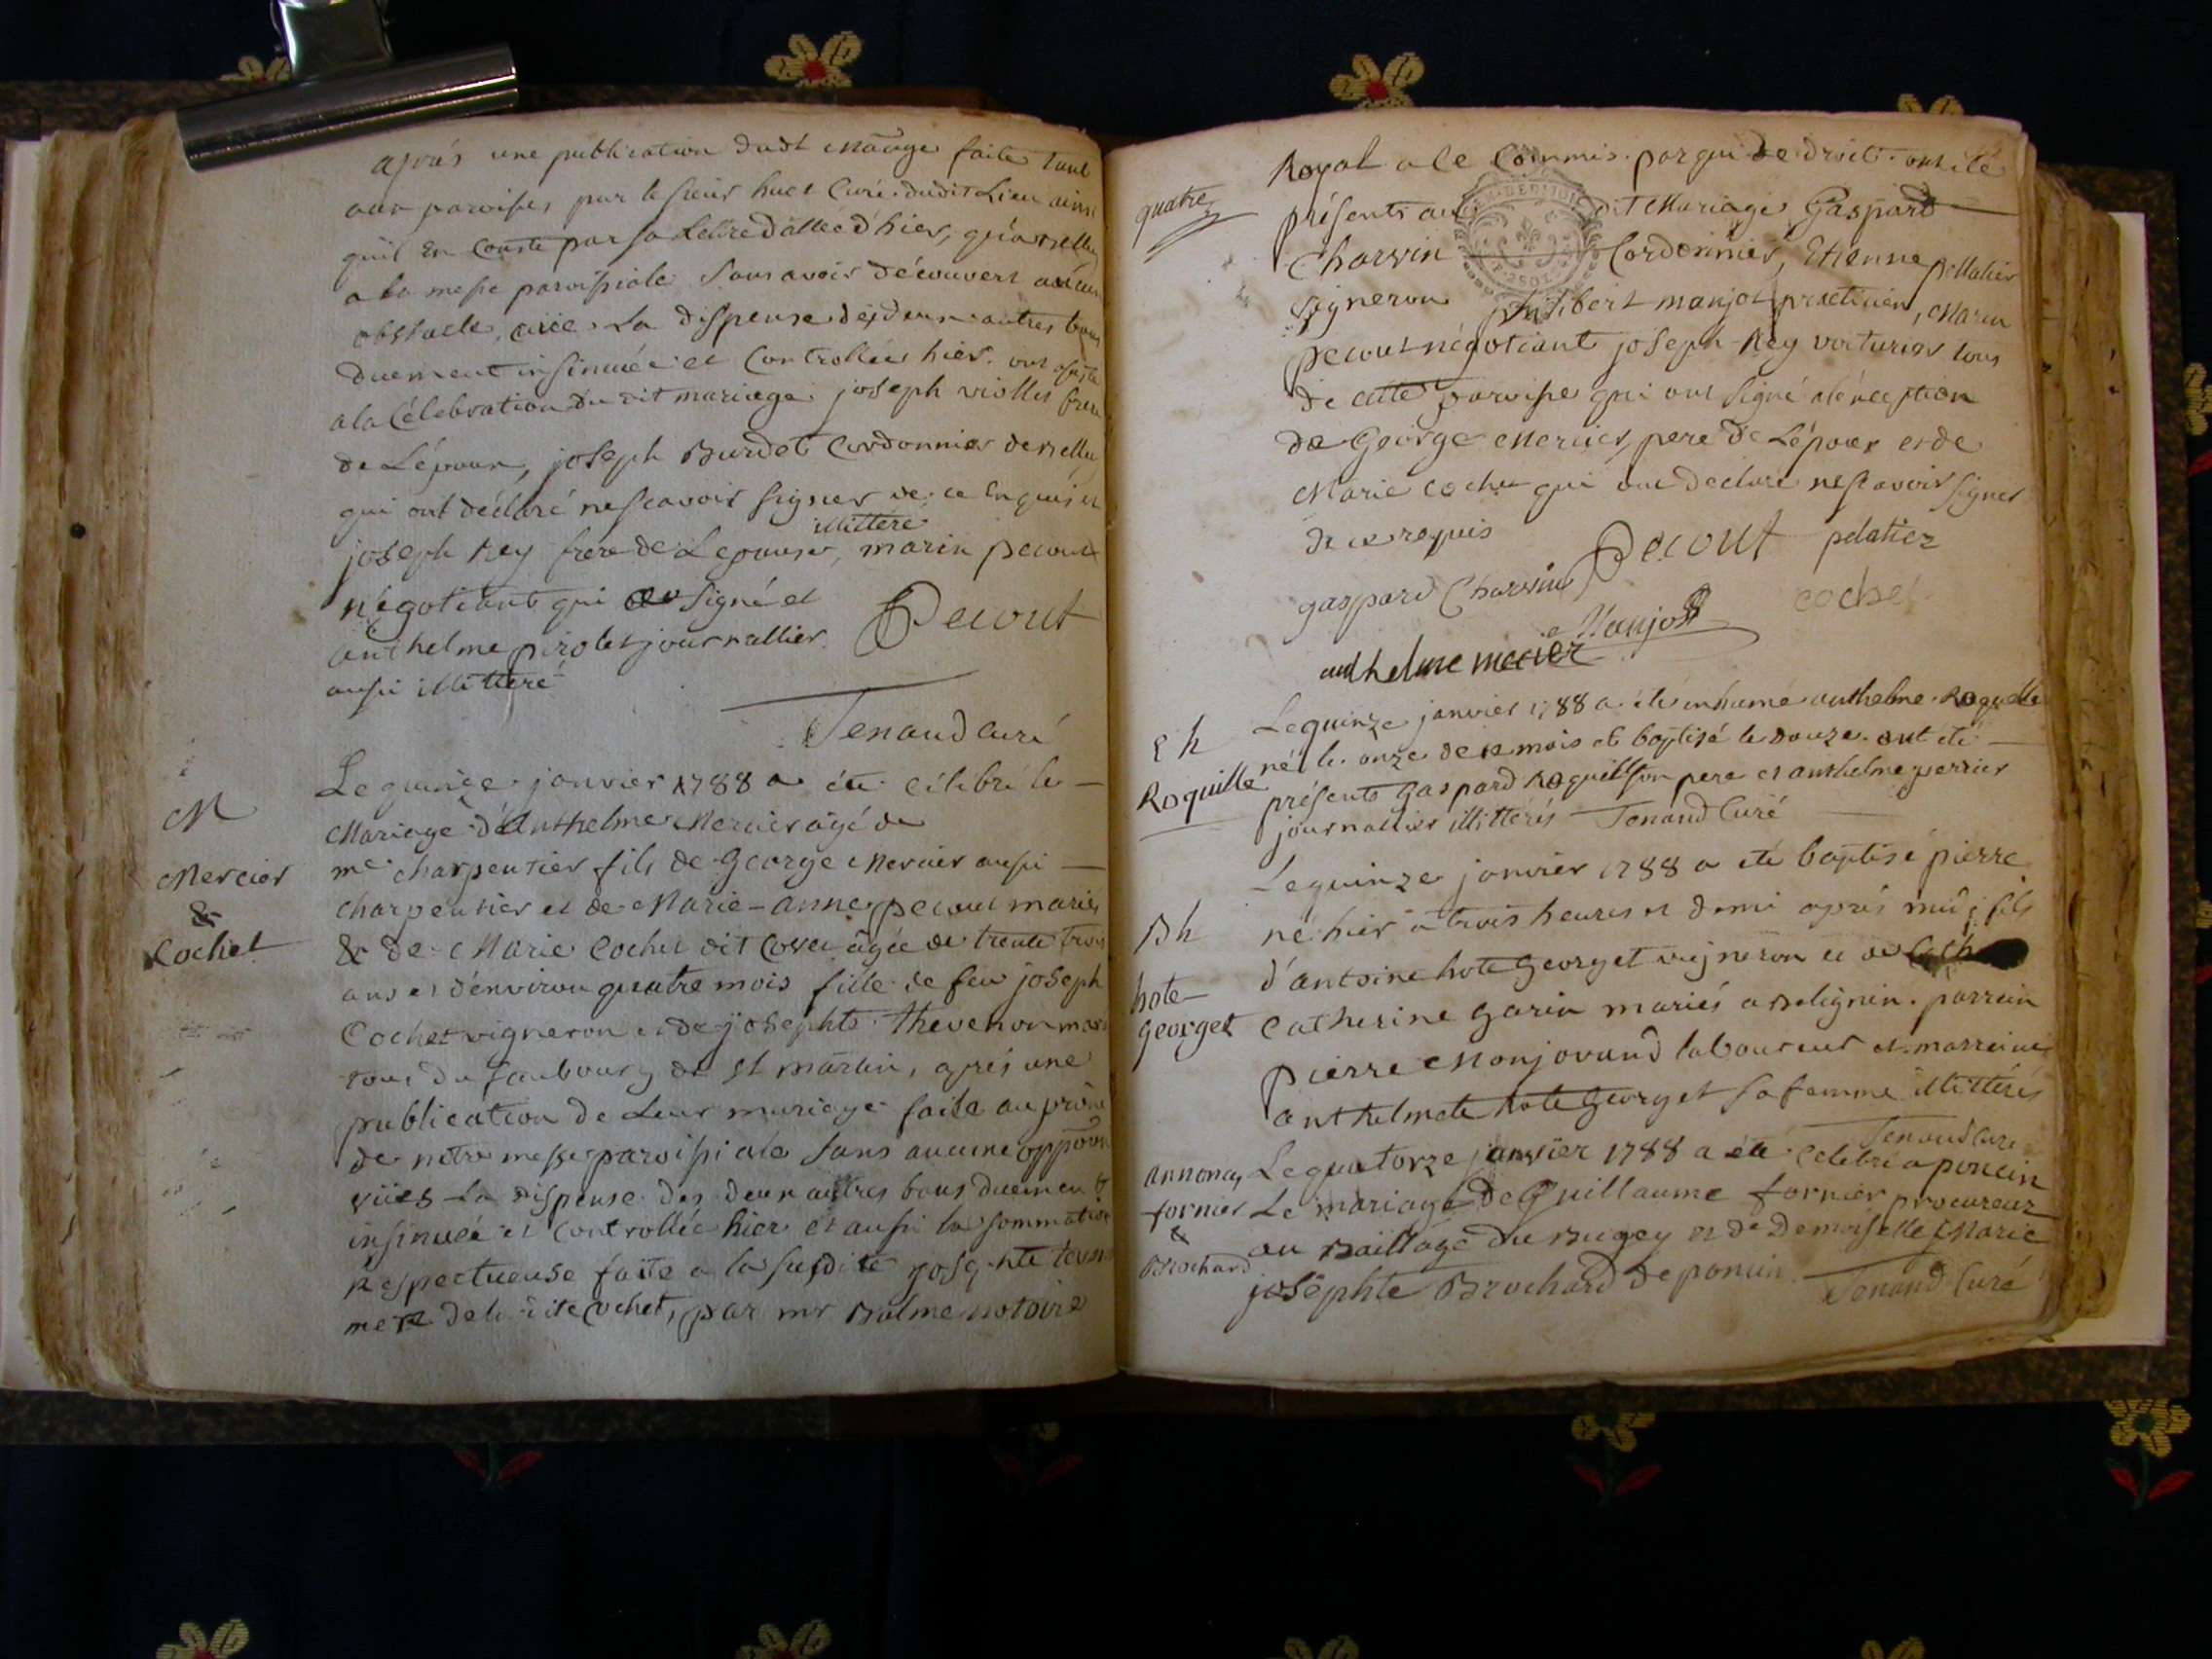 après une publication dudt mariage faite tant
aux paroisses par le sieur huet Curé dudit Lieu ainsi
qu'il En Conste par sa Lettre dattée d'hier, qu'a
a la messe paroissiale Sans avoir découvert aucun
obstacle, vüe La dispense des deux autres bans
duement insinuée et Controllée hier. ont assisté
a la Célébration du dit mariage joseph viollet frere
de L'époux, joseph Burdet Cordonnier
qui ont déclaré ne scavoir signer de ce Enquis et
illitteré
joseph Rey frere de L'epouse, marin pecout
négotiant qui a signé et
anthelme pirolet journallier Pecout
aussi illitteré
Tenand Curé
M
Mercier
&
Cochet
Le quinze janvier 1788 a été célébré le
Mariage d'Anthelme Mercier agé de
me charpentier fils de George Mercier aussi
charpentier et de Marie-anne pecout mariés
& de Marie Cochet dit Coset agée de trente trois
ans et d'environ quatre mois fille de feu joseph
Cochet vigneron et de josephte thevenon mariés
tous du faubourg de st martin, après une
publication de Leur mariage faite au prône
de notre messe paroissiale Sans aucune opposon
vües La dispense des deux autres bans duement
insinuée et Controllée hier et aussi la sommation
Respectueuse faite a la susdite josephte
mere de la dite Cochet, par mr Balme notaire
quatre
Royal a ce Commis par qui de droit. ont été
présents au dit Mariage Gaspard
Charvin Cordonnier, Etienne pellatier
vigneron philibert manjot practicien, Marin
pecout négotiant joseph Rey voiturier tous
de cette paroisse qui ont signé a l'exception
de George Mercier, pere de L'époux et de
Marie cochet qui ont declaré ne scavoir signer
de ce requis
Pecout pelatiez
gaspard Charvin cochet
Manjot
anthelme mercier
E h
Roquille
Le quinze janvier 1788 a été inhumé anthelme Roquille
né le onze de ce mois et baptisé le douze. ont été
présents Gaspard Roquille son pere et anthelme perrier
journallier illitterés Tenand Curé
B h
hote
georget
Le quinze janvier 1788 a été baptisé pierre
né hier a trois heures et demi après midi fils
d'antoine hote georget vigneron et de
Catherine Garin mariés a Belignin. parrain
pierre Monjovand laboureur et marreine
anthelmete hote georget sa femme illitterés
Tenand Curé
annonay
fornier
&
Brochard
Le quatorze janvier 1788 a été celebré a poncin
Le mariage de Guillaume fornier procureur
au Baillage du Bugey et de Demoiselle Marie
josephte Brochard de poncin. Tenand Curé